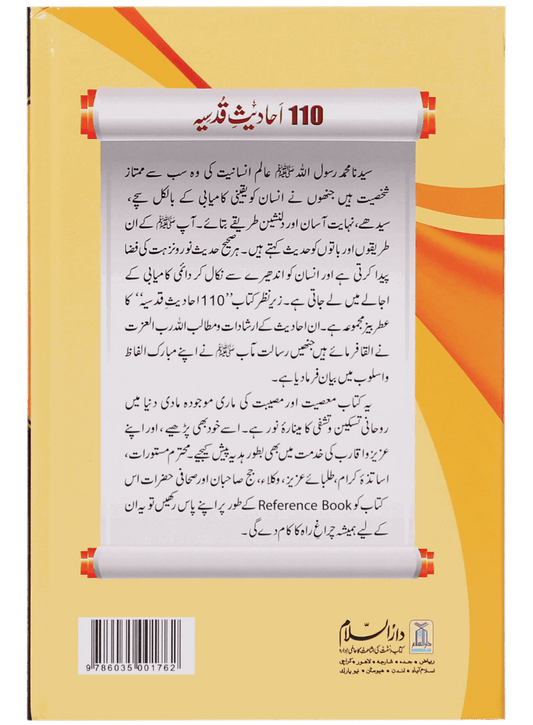 110 اَحادیثِ قُدسیہ
سیدنا محمد رسول اللہ ﷺ عالم انسانیت کی وہ سب سے ممتاز
شخصیت ہیں جنھوں نے انسان کو یقینی کامیابی کے بالکل سچے،
سیدھے، نہایت آسان اور دلنشین طریقے بتائے۔ آپ ﷺ کے ان
طریقوں اور باتوں کو حدیث کہتے ہیں۔ ہر صحیح حدیث نور و نزہت کی فضا
پیدا کرتی ہے اور انسان کو اندھیرے سے نکال کر دائمی کامیابی کے
اجالے میں لے جاتی ہے۔ زیرِ نظر کتاب ”110 احادیثِ قدسیہ“ کا
عطر بیز مجموعہ ہے۔ ان احادیث کے ارشادات و مطالب اللہ رب العزت
نے القا فرمائے ہیں جنھیں رسالت مآب ﷺ نے اپنے مبارک الفاظ
و اسلوب میں بیان فرما دیا ہے۔
یہ کتاب معصیت اور مصیبت کی ماری موجودہ مادی دنیا میں
روحانی تسکین و تشفی کا مینارۂ نور ہے۔ اسے خود بھی پڑھیے، اور اپنے
عزیز و اقارب کی خدمت میں بھی بطور ہدیہ پیش کیجیے۔ محترم مستورات،
اساتذۂ کرام، طلبائے عزیز، وکلاء، جج صاحبان اور صحافی حضرات اس
کتاب کو Reference Book کے طور پر اپنے پاس رکھیں تو یہ ان
کے لیے ہمیشہ چراغِ راہ کا کام دے گی۔
دارُالسّلام
کتاب و سُنّت کی اشاعت کا عالمی ادارہ
ریاض • جدہ • شارجہ • لاہور • کراچی
اسلام آباد • لندن • ہیوسٹن • نیو یارک
9 786035 001762